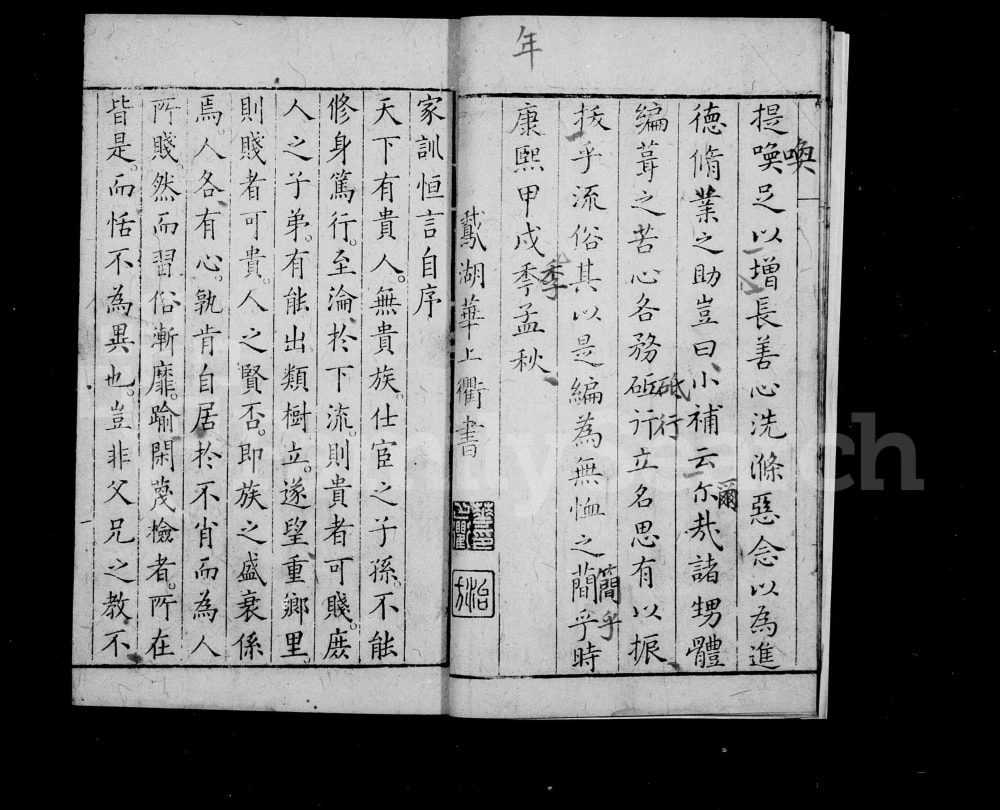 年
提喚足以增長善心洗滌惡念以為進
喚
德脩業之助豈曰小補云尓哉諸甥體
爾
編葺之苦心各務砥行立名思有以振
砥行
拔乎流俗其以是編為無恤之蕑乎時
簡乎
康熙甲戌季孟秋
季
鵞湖華上衢書
家訓恒言自序
天下有貴人。無貴族。仕宦之子孫。不能
修身篤行。至淪於下流。則貴者可賤。庶
人之子弟。有能出類樹立。遂望重鄉里。
則賤者可貴。人之賢否。即族之盛衰係
焉。人各有心。孰肯自居於不肖而為人
所賤然而習俗漸靡。踰閑蔑檢者。所在
皆是。而恬不為異也。豈非父兄之教不
一